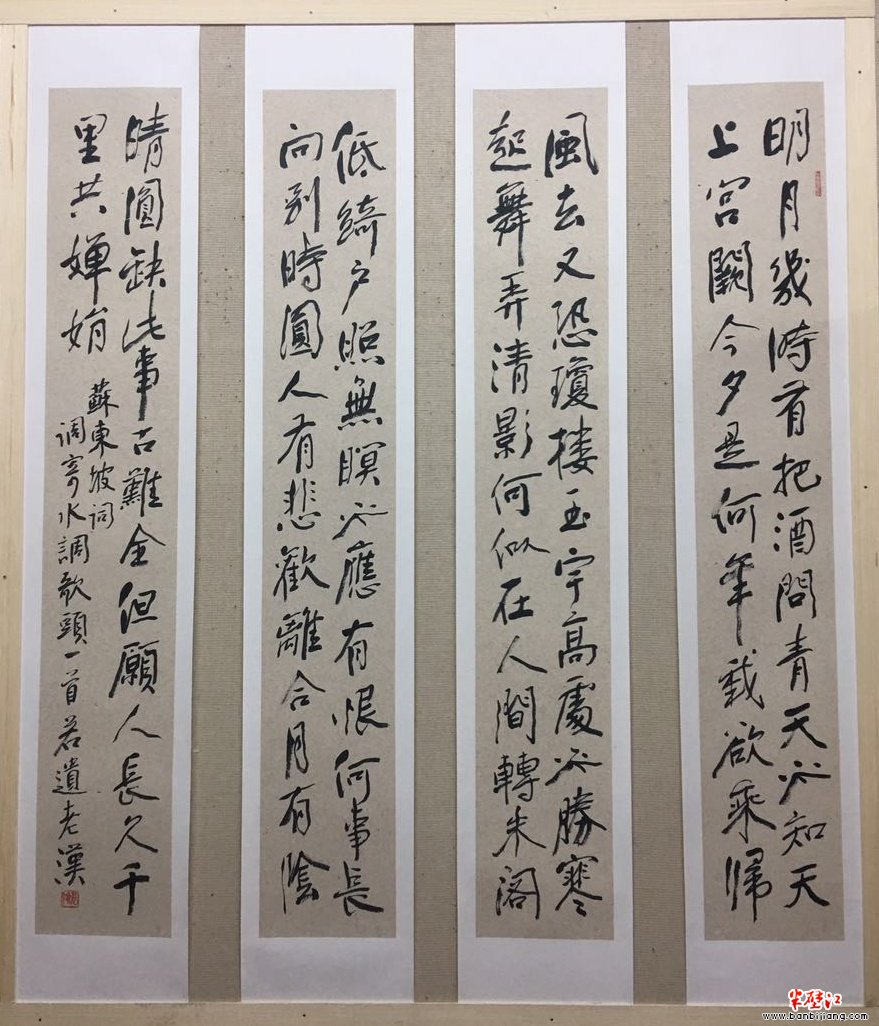 明月幾時有把酒問青天不知天
上宮闕今夕是何年我欲乘歸
風去又恐瓊樓玉宇高處不勝寒
起舞弄清影何似在人間轉朱閣
低綺户照無瞑不應有恨何事長
向别時圓人有悲歡離合月有陰
晴圓缺此事古難全但願人長久千
里共嬋娟
蘇東坡词
调寄水調歌頭一首若遺老漢
半壁江
www.banbijiang.com